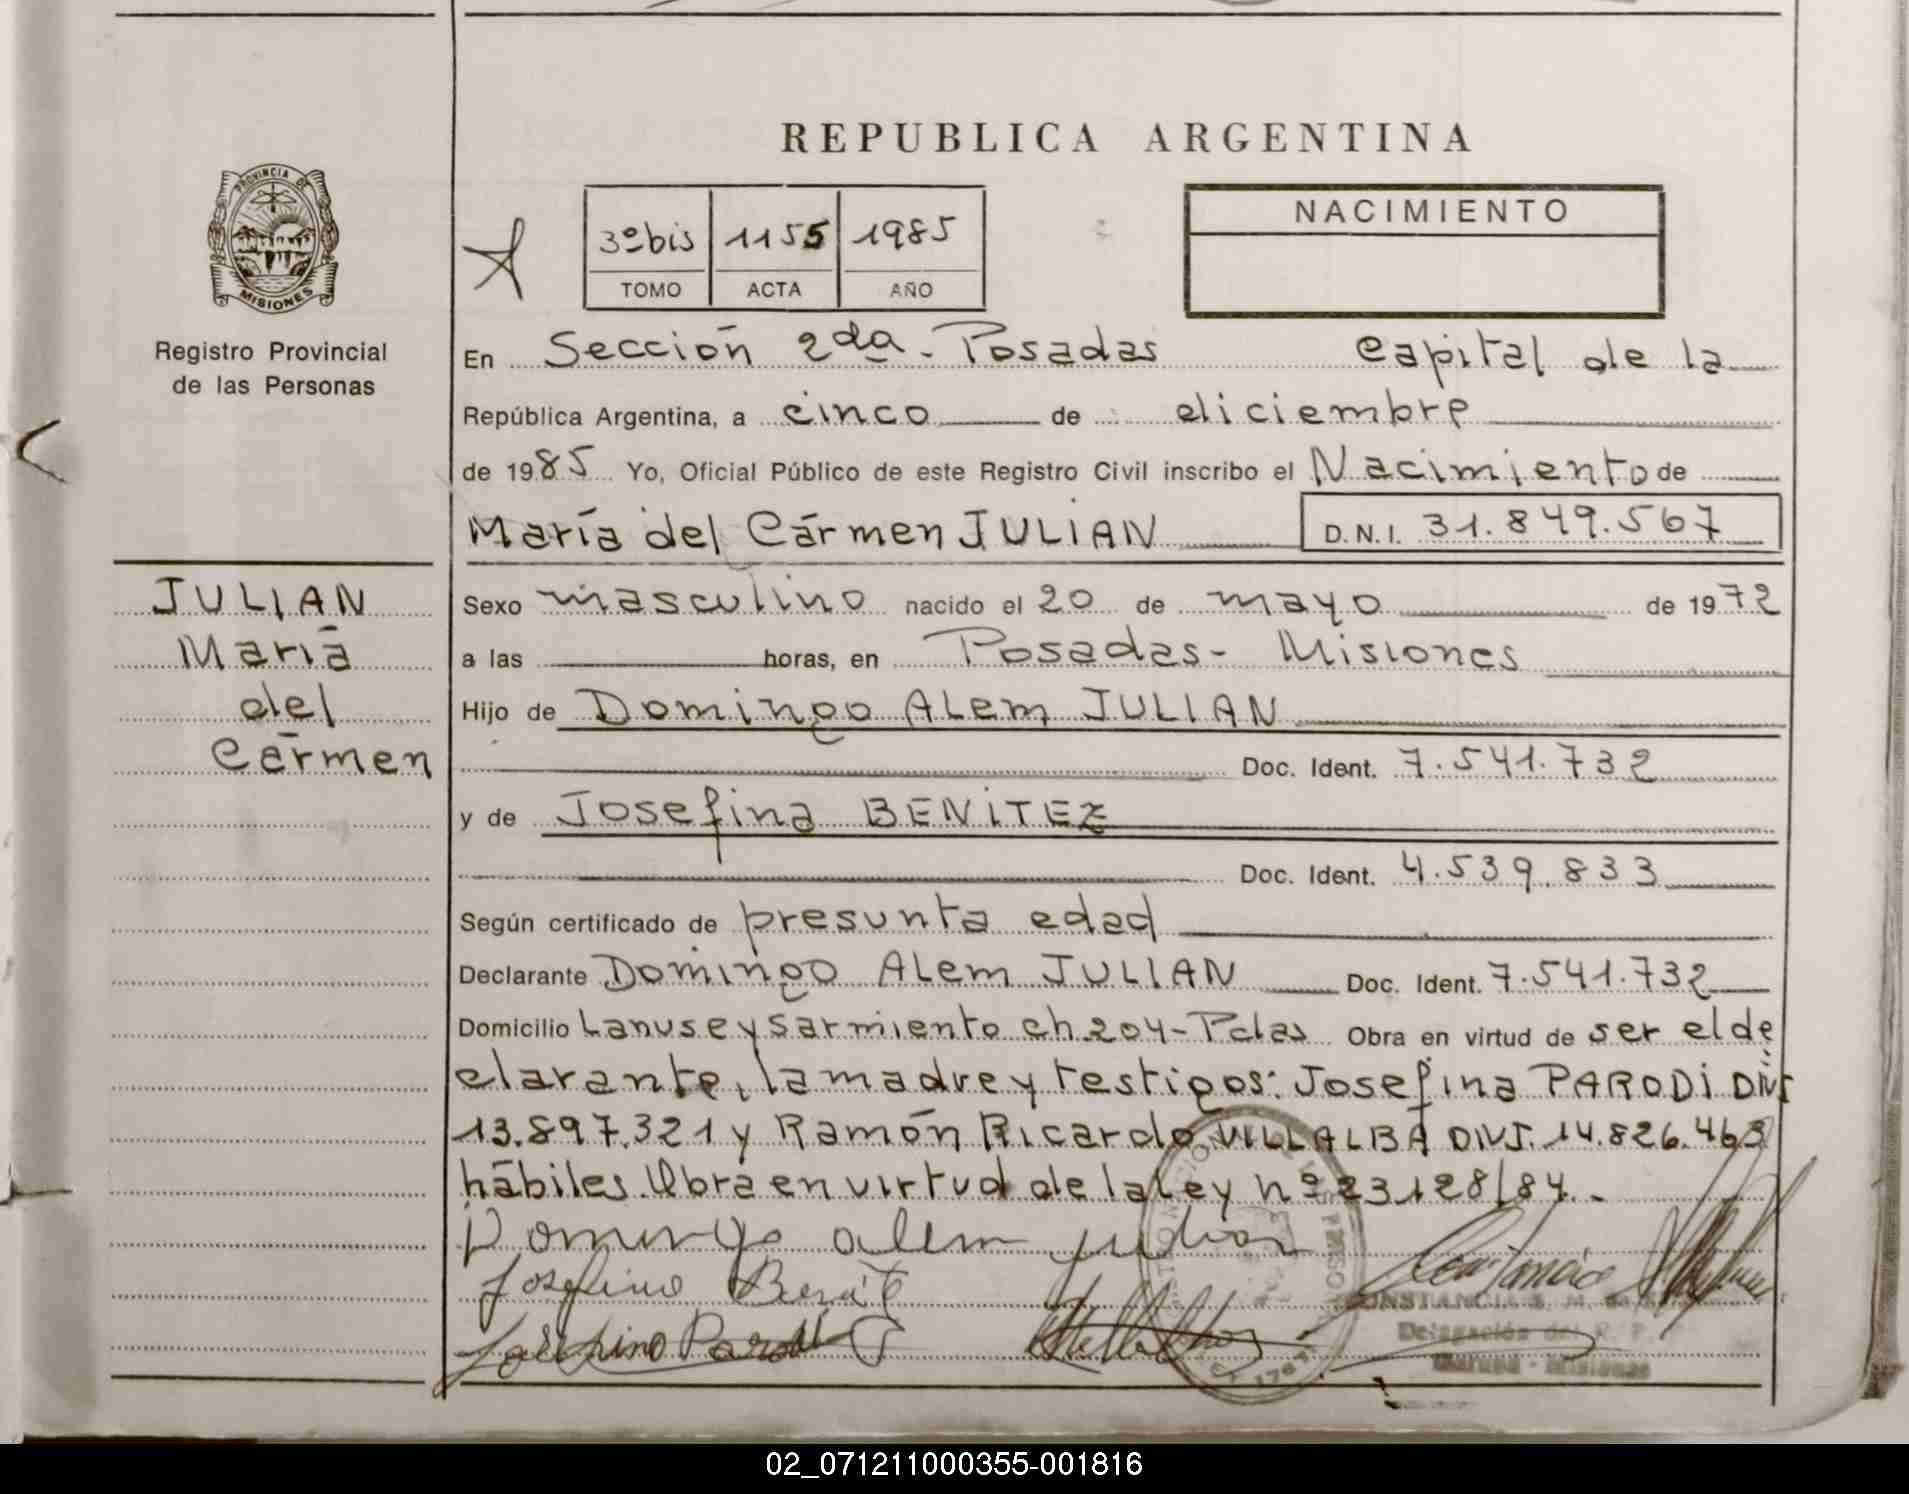 REPUBLICA ARGENTINA
PROVINCIA DE
MISIONES
Registro Provincial
de las Personas
3º bis 1155 1985
TOMO ACTA AÑO
NACIMIENTO
En Sección 2da - Posadas Capital de la
República Argentina, a cinco de diciembre
de 1985 Yo, Oficial Público de este Registro Civil inscribo el Nacimiento de
María del Cármen JULIAN D.N.I. 31.849.567
JULIAN
María
del
Cármen
Sexo masculino nacido el 20 de mayo de 1972
a las horas, en Posadas - Misiones
Hijo de Domingo ALem JULIAN
Doc. Ident. 7.541.732
y de Josefina BENITEZ
Doc. Ident. 4.539.833
Según certificado de presunta edad
Declarante Domingo ALem JULIAN Doc. Ident. 7.541.732
Domicilio Lanuse y Sarmiento ch 204 - Pdas Obra en virtud de ser el de
clarante, la madre y testigos: Josefina PARODI DNI
13.897.321 y Ramón Ricardo VILLALBA DNI. 14.826.463
hábiles. Obra en virtud de la ley nº 23128/84. -
Domingo alem julian
Josefina Benit
Josefina Parodi
CONSTANCIA S. M.
Delegación del R. P.
Misiones
02_071211000355-001816